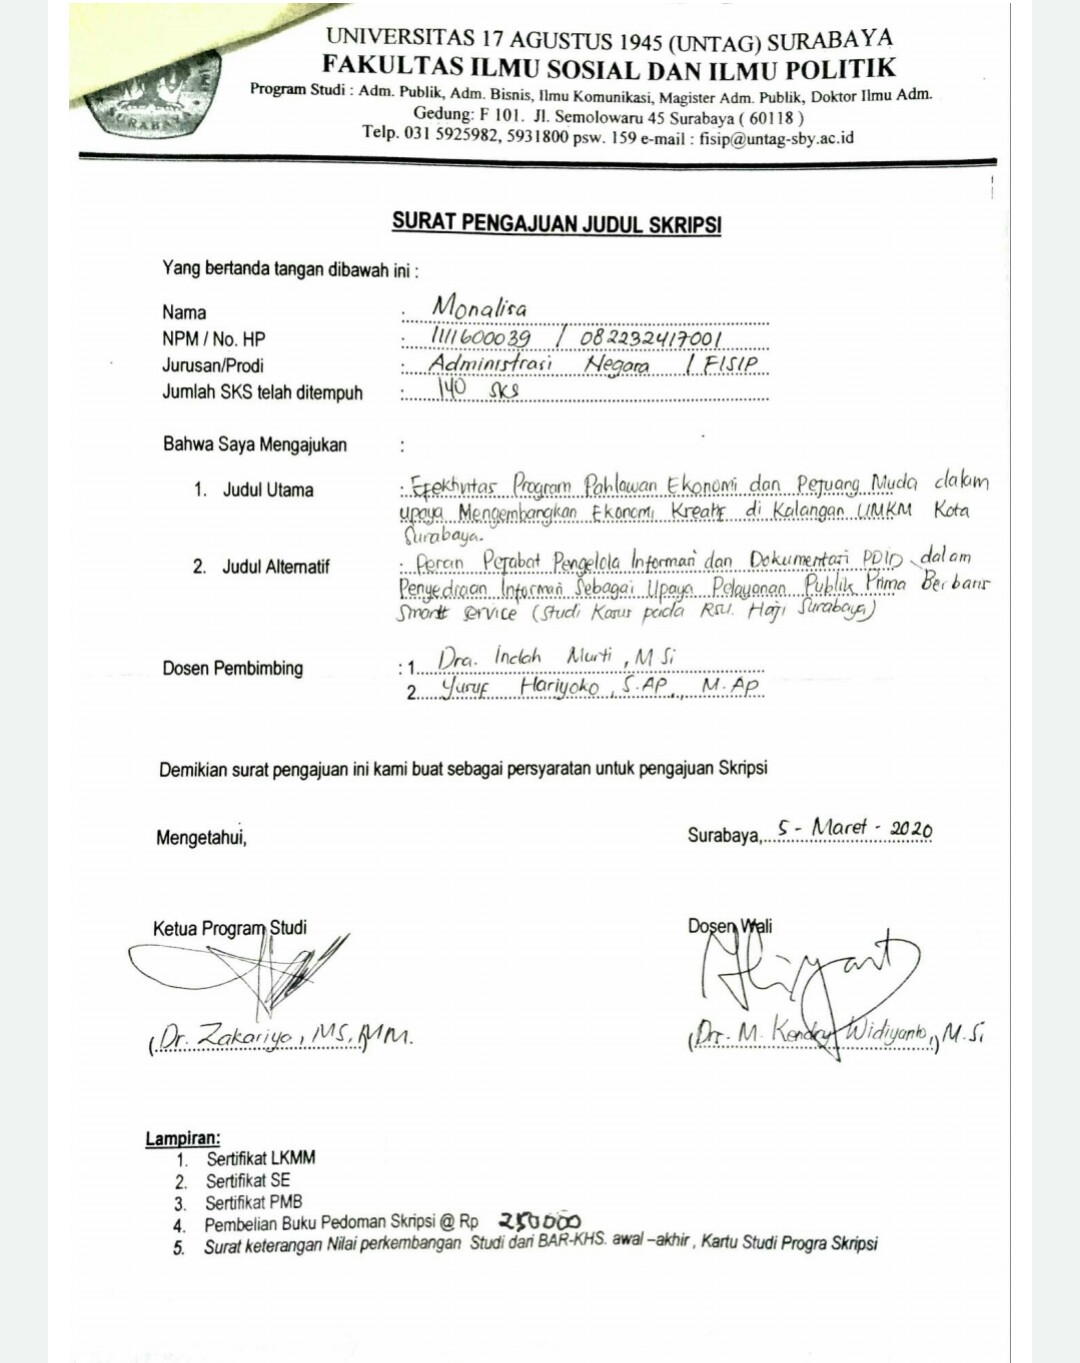 SURABAYA
UNIVERSITAS 17 AGUSTUS 1945 (UNTAG) SURABAYA
FAKULTAS ILMU SOSIAL DAN ILMU POLITIK
Program Studi : Adm. Publik, Adm. Bisnis, Ilmu Komunikasi, Magister Adm. Publik, Doktor Ilmu Adm.
Gedung: F 101. Jl. Semolowaru 45 Surabaya ( 60118 )
Telp. 031 5925982, 5931800 psw. 159 e-mail : fisip@untag-sby.ac.id
SURAT PENGAJUAN JUDUL SKRIPSI
Yang bertanda tangan dibawah ini :
Nama : Monalisa
NPM / No. HP : 1111600039 / 082232417001
Jurusan/Prodi : Administrasi Negara / FISIP
Jumlah SKS telah ditempuh : 140 SKS
Bahwa Saya Mengajukan :
1. Judul Utama : Efektivitas Program Pahlawan Ekonomi dan Pejuang Muda dalam
upaya Mengembangkan Ekonomi Kreatif di Kalangan UMKM Kota
Surabaya.
2. Judul Alternatif : Peran Pejabat Pengelola Informasi dan Dokumentasi PPID dalam
Penyediaan Informasi Sebagai Upaya Pelayanan Publik Prima Berbasis
Smart Service (Studi Kasus pada RSU. Haji Surabaya)
Dosen Pembimbing : 1. Dra. Indah Murti, M Si
2. Yusuf Hariyoko, S.AP., M.AP
Demikian surat pengajuan ini kami buat sebagai persyaratan untuk pengajuan Skripsi
Mengetahui, Surabaya, 5 - Maret - 2020
Ketua Program Studi Dosen Wali
(Dr. Zakariya, MS, MM. (Drs. M. Kendry Widiyanto,) M.Si
Lampiran:
1. Sertifikat LKMM
2. Sertifikat SE
3. Sertifikat PMB
4. Pembelian Buku Pedoman Skripsi @ Rp 250000
5. Surat keterangan Nilai perkembangan Studi dari BAR-KHS. awal –akhir, Kartu Studi Progra Skripsi